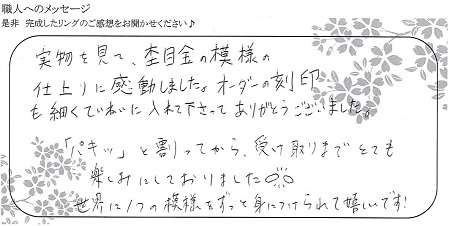 職人へのメッセージ
是非 完成したリングのご感想をお聞かせください♪
実物を見て、杢目金の模様の
仕上りに感動しました。オーダーの刻印
も細くていねいに入れて下さってありがとうございました。
「パキッ」と割ってから、受け取りまでとても
楽しみにしておりました
世界に1つの模様をずっと身につけられて嬉しいです!